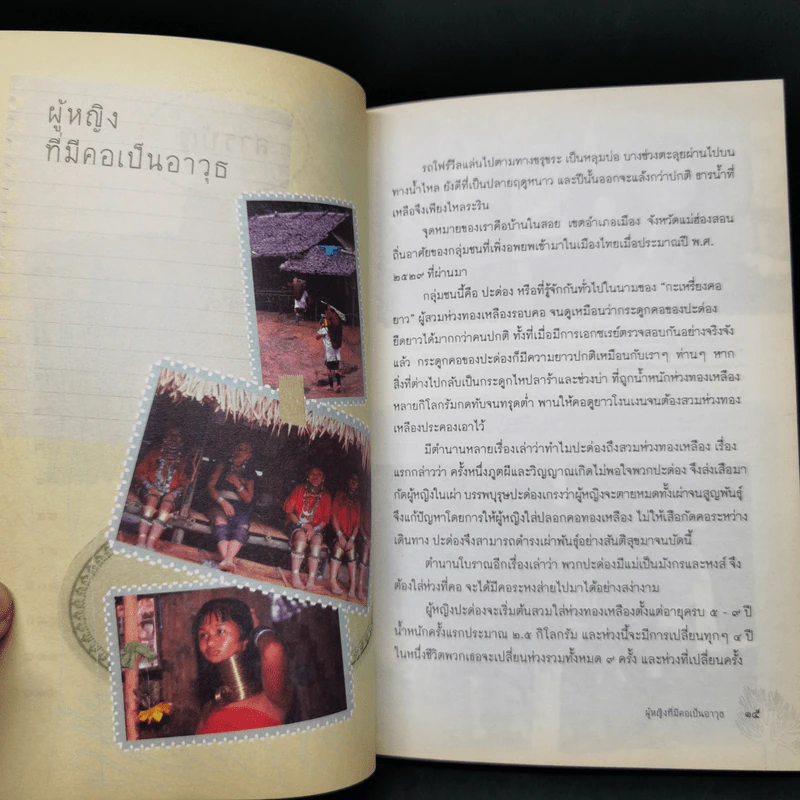 ผู้หญิง
ที่มีคอเป็นอาวุธ
รถโฟร์วีลแล่นไปตามทางขรุขระ เป็นหลุมบ่อ บางช่วงตะลุยผ่านไปบน
ทางน้ำไหล ยังดีที่เป็นปลายฤดูหนาว และปีนั้นออกจะแล้งกว่าปกติ ธารน้ำที่
เหลือจึงเพียงไหลระริน
จุดหมายของเราคือบ้านในสอย เขตอำเภอเมือง จังหวัดแม่ฮ่องสอน
ถิ่นอาศัยของกลุ่มชนที่เพิ่งอพยพเข้ามาในเมืองไทยเมื่อประมาณปี พ.ศ.
๒๕๒๙ ที่ผ่านมา
กลุ่มชนนี้คือ ปะด่อง หรือที่รู้จักกันทั่วไปในนามของ "กะเหรี่ยงคอ
ยาว" ผู้สวมห่วงทองเหลืองรอบคอ จนดูเหมือนว่ากระดูกคอของปะด่อง
ยืดยาวได้มากกว่าคนปกติ ทั้งที่เมื่อมีการเอกซเรย์ตรวจสอบกันอย่างจริงจัง
แล้ว กระดูกคอของปะด่องก็มีความยาวปกติเหมือนกับเราๆ ท่านๆ หาก
สิ่งที่ต่างไปกลับเป็นกระดูกไหปลาร้าและช่วงบ่า ที่ถูกน้ำหนักห่วงทองเหลือง
หลายกิโลกรัมกดทับจนทรุดต่ำ พานให้คอดูยาวโงนเงนจนต้องสวมห่วงทอง
เหลืองประคองเอาไว้
มีตำนานหลายเรื่องเล่าว่าทำไมปะด่องถึงสวมห่วงทองเหลือง เรื่อง
แรกกล่าวว่า ครั้งหนึ่งภูตผีและวิญญาณเกิดไม่พอใจพวกปะด่อง จึงส่งเสือมา
กัดผู้หญิงในเผ่า บรรพบุรุษปะด่องเกรงว่าผู้หญิงจะตายหมดทั้งเผ่าจนสูญพันธุ์
จึงแก้ปัญหาโดยการให้ผู้หญิงใส่ปลอกคอทองเหลือง ไม่ให้เสือกัดคอระหว่าง
เดินทาง ปะด่องจึงสามารถดำรงเผ่าพันธุ์อย่างสันติสุขมาจนบัดนี้
ตำนานโบราณอีกเรื่องเล่าว่า พวกปะด่องมีแม่เป็นมังกรและหงส์ จึง
ต้องใส่ห่วงที่คอ จะได้มีคอระหงส่ายไปมาได้อย่างสง่างาม
ผู้หญิงปะด่องจะเริ่มต้นสวมใส่ห่วงทองเหลืองตั้งแต่อายุครบ ๕ - ๙ ปี
น้ำหนักครั้งแรกประมาณ ๒.๕ กิโลกรัม และห่วงนี้จะมีการเปลี่ยนทุกๆ ๔ ปี
ในหนึ่งชีวิตพวกเธอจะเปลี่ยนห่วงรวมทั้งหมด ๙ ครั้ง และห่วงที่เปลี่ยนครั้ง
ผู้หญิงที่มีคอเป็นอาวุธ ๑๕